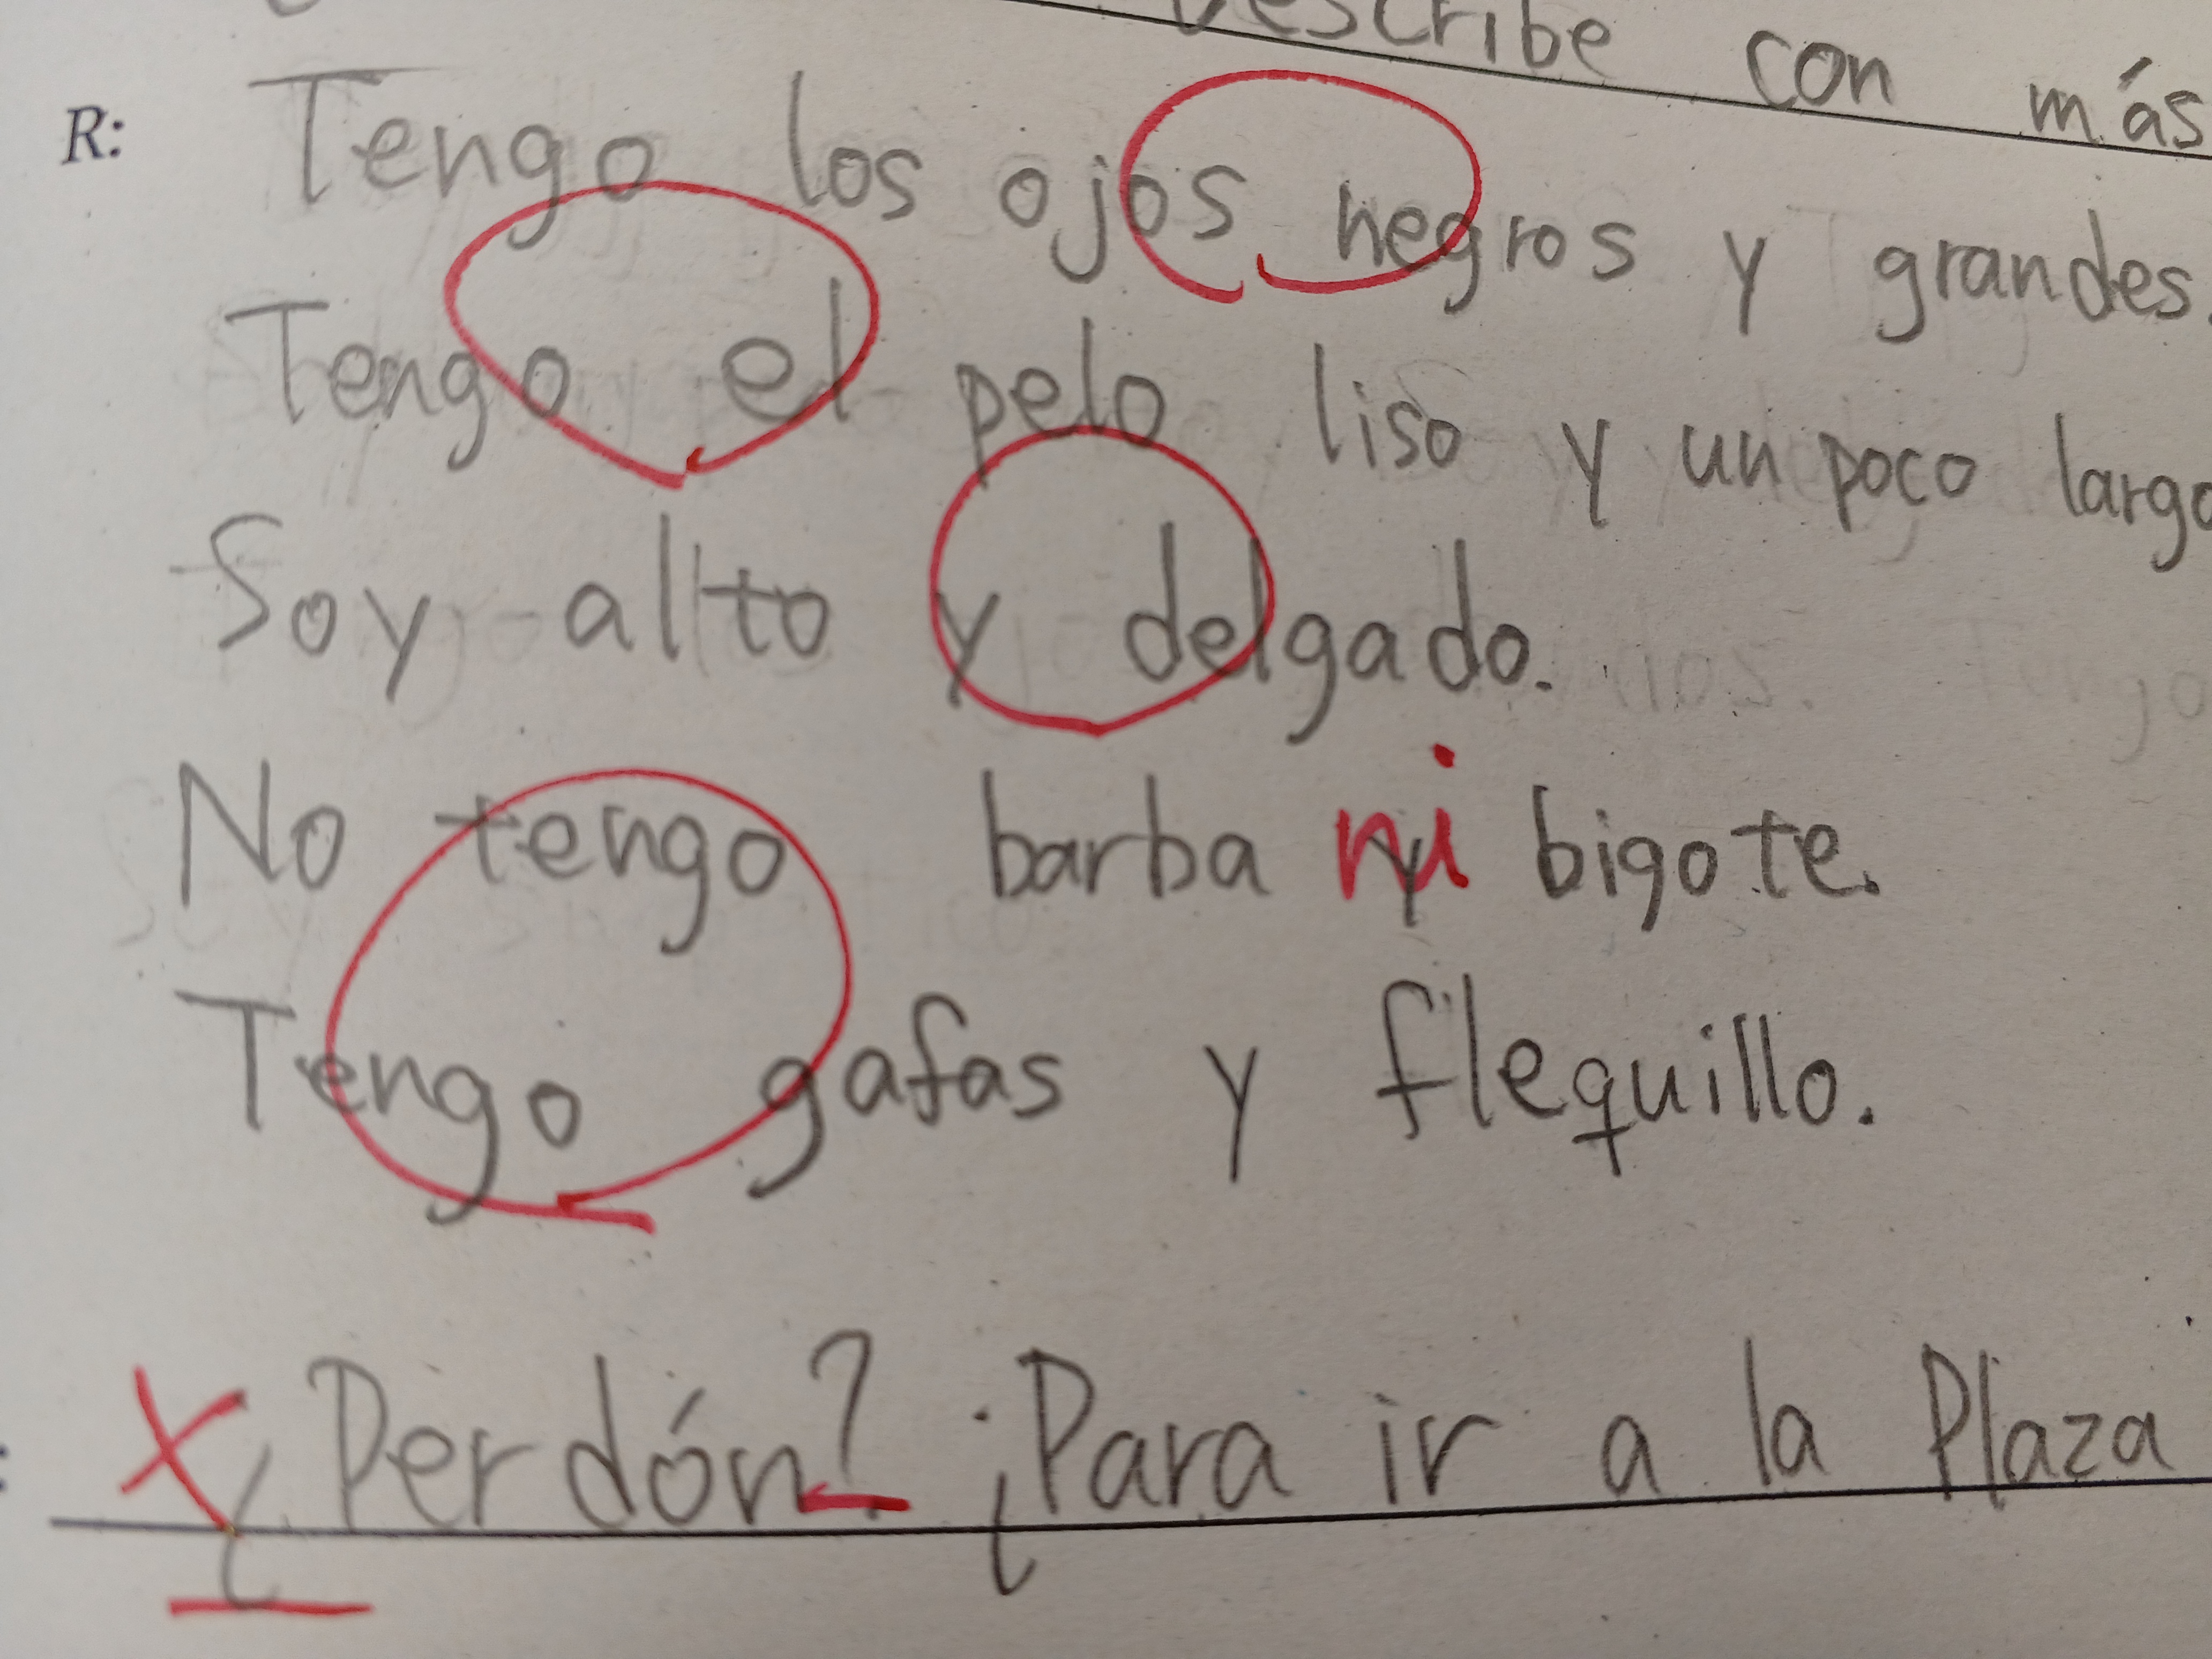 Describe con más
R: Tengo los ojos negros y grandes.
Tengo el pelo liso y un poco largo
Soy alto y delgado.
No tengo barba ni bigote.
Tengo gafas y flequillo.
¿Perdón? ¿Para ir a la Plaza